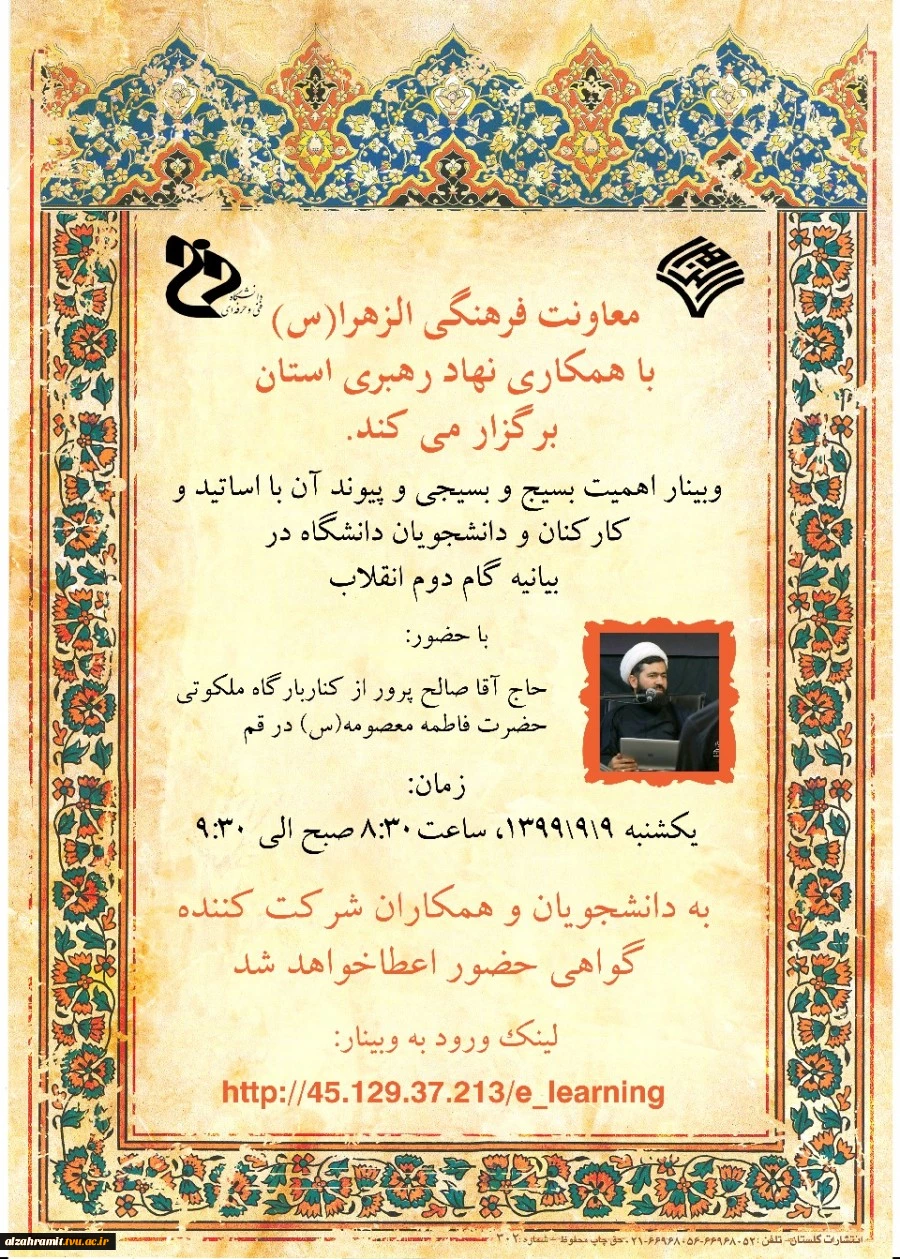 دانشگاه
فنی و حرفه‌ای
معاونت فرهنگی الزهرا(س)
با همکاری نهاد رهبری استان
برگزار می کند.
وبینار اهمیت بسیج و بسیجی و پیوند آن با اساتید و
کارکنان و دانشجویان دانشگاه در
بیانیه گام دوم انقلاب
با حضور:
حاج آقا صالح پرور از کناربارگاه ملکوتی
حضرت فاطمه معصومه(س) در قم
زمان:
یکشنبه ۱۳۹۹\۹\۹، ساعت ۸:۳۰ صبح الی ۹:۳۰
به دانشجویان و همکاران شرکت کننده
گواهی حضور اعطاخواهد شد
لینک ورود به وبینار:
http://45.129.37.213/e_learning
انتشارات گلستان - تلفن: ۶۶۹۶۸۰۵۲-۶۶۹۶۸۰۵۶-۰۲۱ حق چاپ محفوظ - شماره: ۳۰۲
alzahramit.tvu.ac.ir